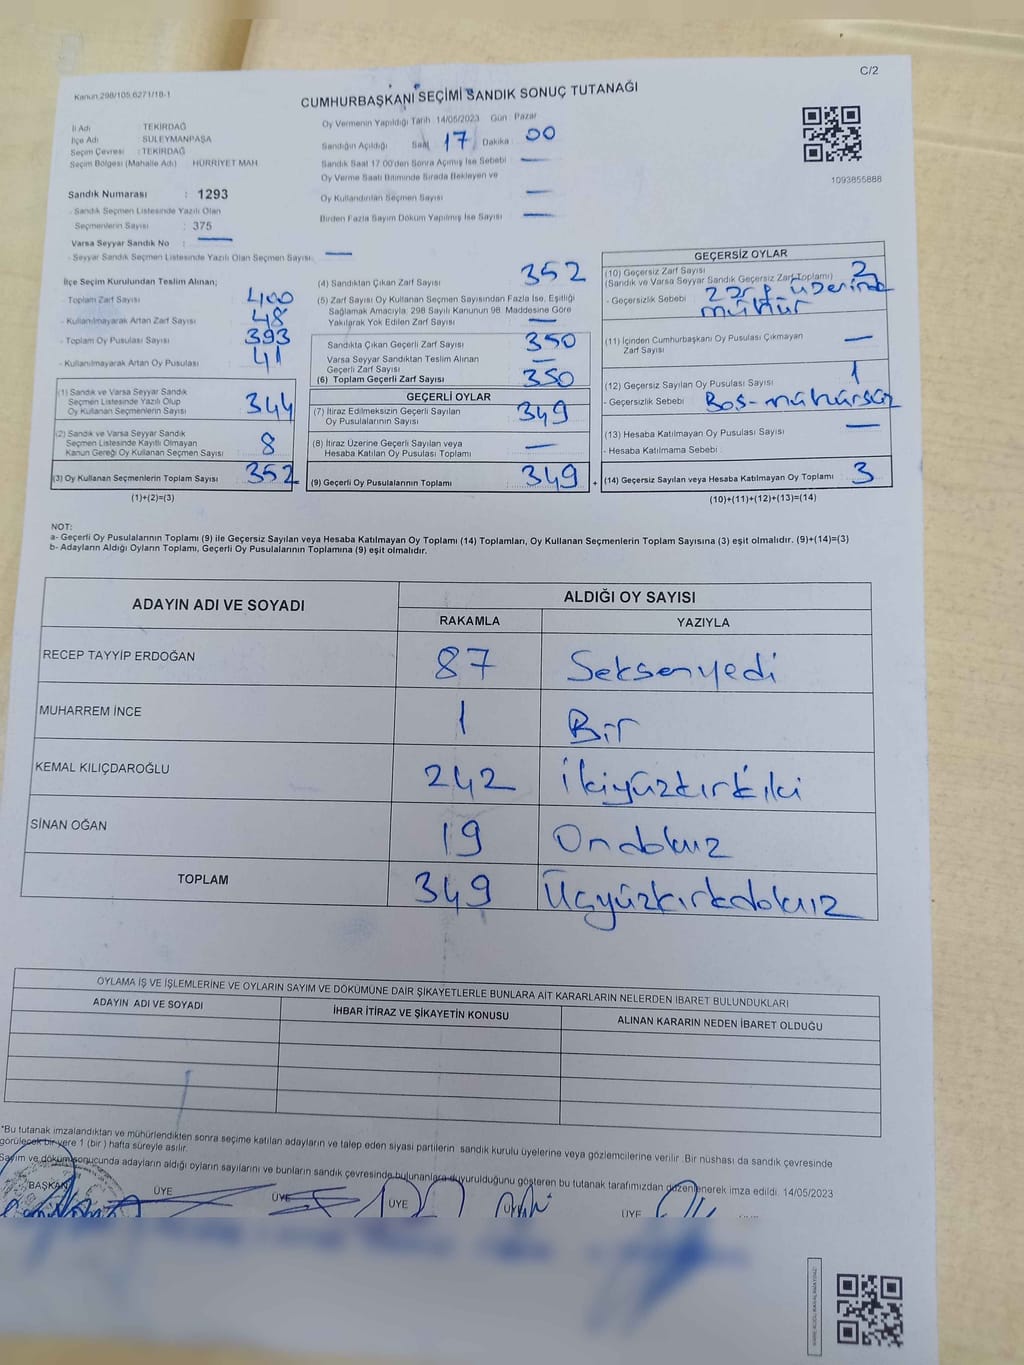 C/2
Kanun:298/105,6271/18-1
CUMHURBAŞKANI SEÇİMİ SANDIK SONUÇ TUTANAĞI
İl Adı : TEKİRDAĞ
İlçe Adı : SÜLEYMANPAŞA
Seçim Çevresi : TEKİRDAĞ
Seçim Bölgesi (Mahalle Adı) HÜRRİYET MAH.
Sandık Numarası : 1293
- Sandık Seçmen Listesinde Yazılı Olan
Seçmenlerin Sayısı : 375
Varsa Seyyar Sandık No : —
- Seyyar Sandık Seçmen Listesinde Yazılı Olan Seçmen Sayısı: —
Oy Vermenin Yapıldığı Tarih 14/05/2023 Gün Pazar
Sandığın Açıldığı Saat 17 Dakika 00
Sandık Saat 17:00'den Sonra Açılmış İse Sebebi —
Oy Verme Saati Bitiminde Sırada Bekleyen ve
Oy Kullandırılan Seçmen Sayısı —
Birden Fazla Sayım Döküm Yapılmış İse Sayısı —
1093855888
İlçe Seçim Kurulundan Teslim Alınan;
- Toplam Zarf Sayısı 400
- Kullanılmayarak Artan Zarf Sayısı 48
- Toplam Oy Pusulası Sayısı 393
- Kullanılmayarak Artan Oy Pusulası 41
(1) Sandık ve Varsa Seyyar Sandık
Seçmen Listesinde Yazılı Olup
Oy Kullanan Seçmenlerin Sayısı 344
(2) Sandık ve Varsa Seyyar Sandık
Seçmen Listesinde Kayıtlı Olmayan
Kanun Gereği Oy Kullanan Seçmen Sayısı 8
(3) Oy Kullanan Seçmenlerin Toplam Sayısı 352
(1)+(2)=(3)
(4) Sandıktan Çıkan Zarf Sayısı 352
(5) Zarf Sayısı Oy Kullanan Seçmen Sayısından Fazla İse, Eşitliği
Sağlamak Amacıyla; 298 Sayılı Kanunun 98. Maddesine Göre
Yakılarak Yok Edilen Zarf Sayısı —
Sandıkta Çıkan Geçerli Zarf Sayısı 350
Varsa Seyyar Sandıktan Teslim Alınan
Geçerli Zarf Sayısı —
(6) Toplam Geçerli Zarf Sayısı 350
GEÇERLİ OYLAR
(7) İtiraz Edilmeksizin Geçerli Sayılan
Oy Pusulalarının Sayısı 349
(8) İtiraz Üzerine Geçerli Sayılan veya
Hesaba Katılan Oy Pusulası Toplamı —
(9) Geçerli Oy Pusulalarının Toplamı 349 +
GEÇERSİZ OYLAR
(10) Geçersiz Zarf Sayısı
(Sandık ve Varsa Seyyar Sandık Geçersiz Zarf Toplamı) 2
- Geçersizlik Sebebi 2 zarf üzerinde
mühür
(11) İçinden Cumhurbaşkanı Oy Pusulası Çıkmayan
Zarf Sayısı —
(12) Geçersiz Sayılan Oy Pusulası Sayısı 1
- Geçersizlik Sebebi : Boş-mühürsüz
(13) Hesaba Katılmayan Oy Pusulası Sayısı —
- Hesaba Katılmama Sebebi :
(14) Geçersiz Sayılan veya Hesaba Katılmayan Oy Toplamı 3
(10)+(11)+(12)+(13)=(14)
NOT:
a- Geçerli Oy Pusulalarının Toplamı (9) ile Geçersiz Sayılan veya Hesaba Katılmayan Oy Toplamı (14) Toplamları, Oy Kullanan Seçmenlerin Toplam Sayısına (3) eşit olmalıdır. (9)+(14)=(3)
b- Adayların Aldığı Oyların Toplamı, Geçerli Oy Pusulalarının Toplamına (9) eşit olmalıdır.
ADAYIN ADI VE SOYADI ALDIĞI OY SAYISI
RAKAMLA YAZIYLA
RECEP TAYYİP ERDOĞAN 87 Seksenyedi
MUHARREM İNCE 1 Bir
KEMAL KILIÇDAROĞLU 242 İkiyüzkırkiki
SİNAN OĞAN 19 Ondokuz
TOPLAM 349 Üçyüzkırkdokuz
OYLAMA İŞ VE İŞLEMLERİNE VE OYLARIN SAYIM VE DÖKÜMÜNE DAİR ŞİKAYETLERLE BUNLARA AİT KARARLARIN NELERDEN İBARET BULUNDUKLARI
ADAYIN ADI VE SOYADI İHBAR İTİRAZ VE ŞİKAYETİN KONUSU ALINAN KARARIN NEDEN İBARET OLDUĞU
*Bu tutanak imzalandıktan ve mühürlendikten sonra seçime katılan adayların ve talep eden siyasi partilerin sandık kurulu üyelerine veya gözlemcilerine verilir. Bir nüshası da sandık çevresinde
görülecek bir yere 1 (bir) hafta süreyle asılır.
Sayım ve döküm sonucunda adayların aldığı oyların sayılarını ve bunların sandık çevresinde bulunanlara duyurulduğunu gösteren bu tutanak tarafımızdan düzenlenerek imza edildi. 14/05/2023
BAŞKAN ÜYE ÜYE ÜYE ÜYE ÜYE